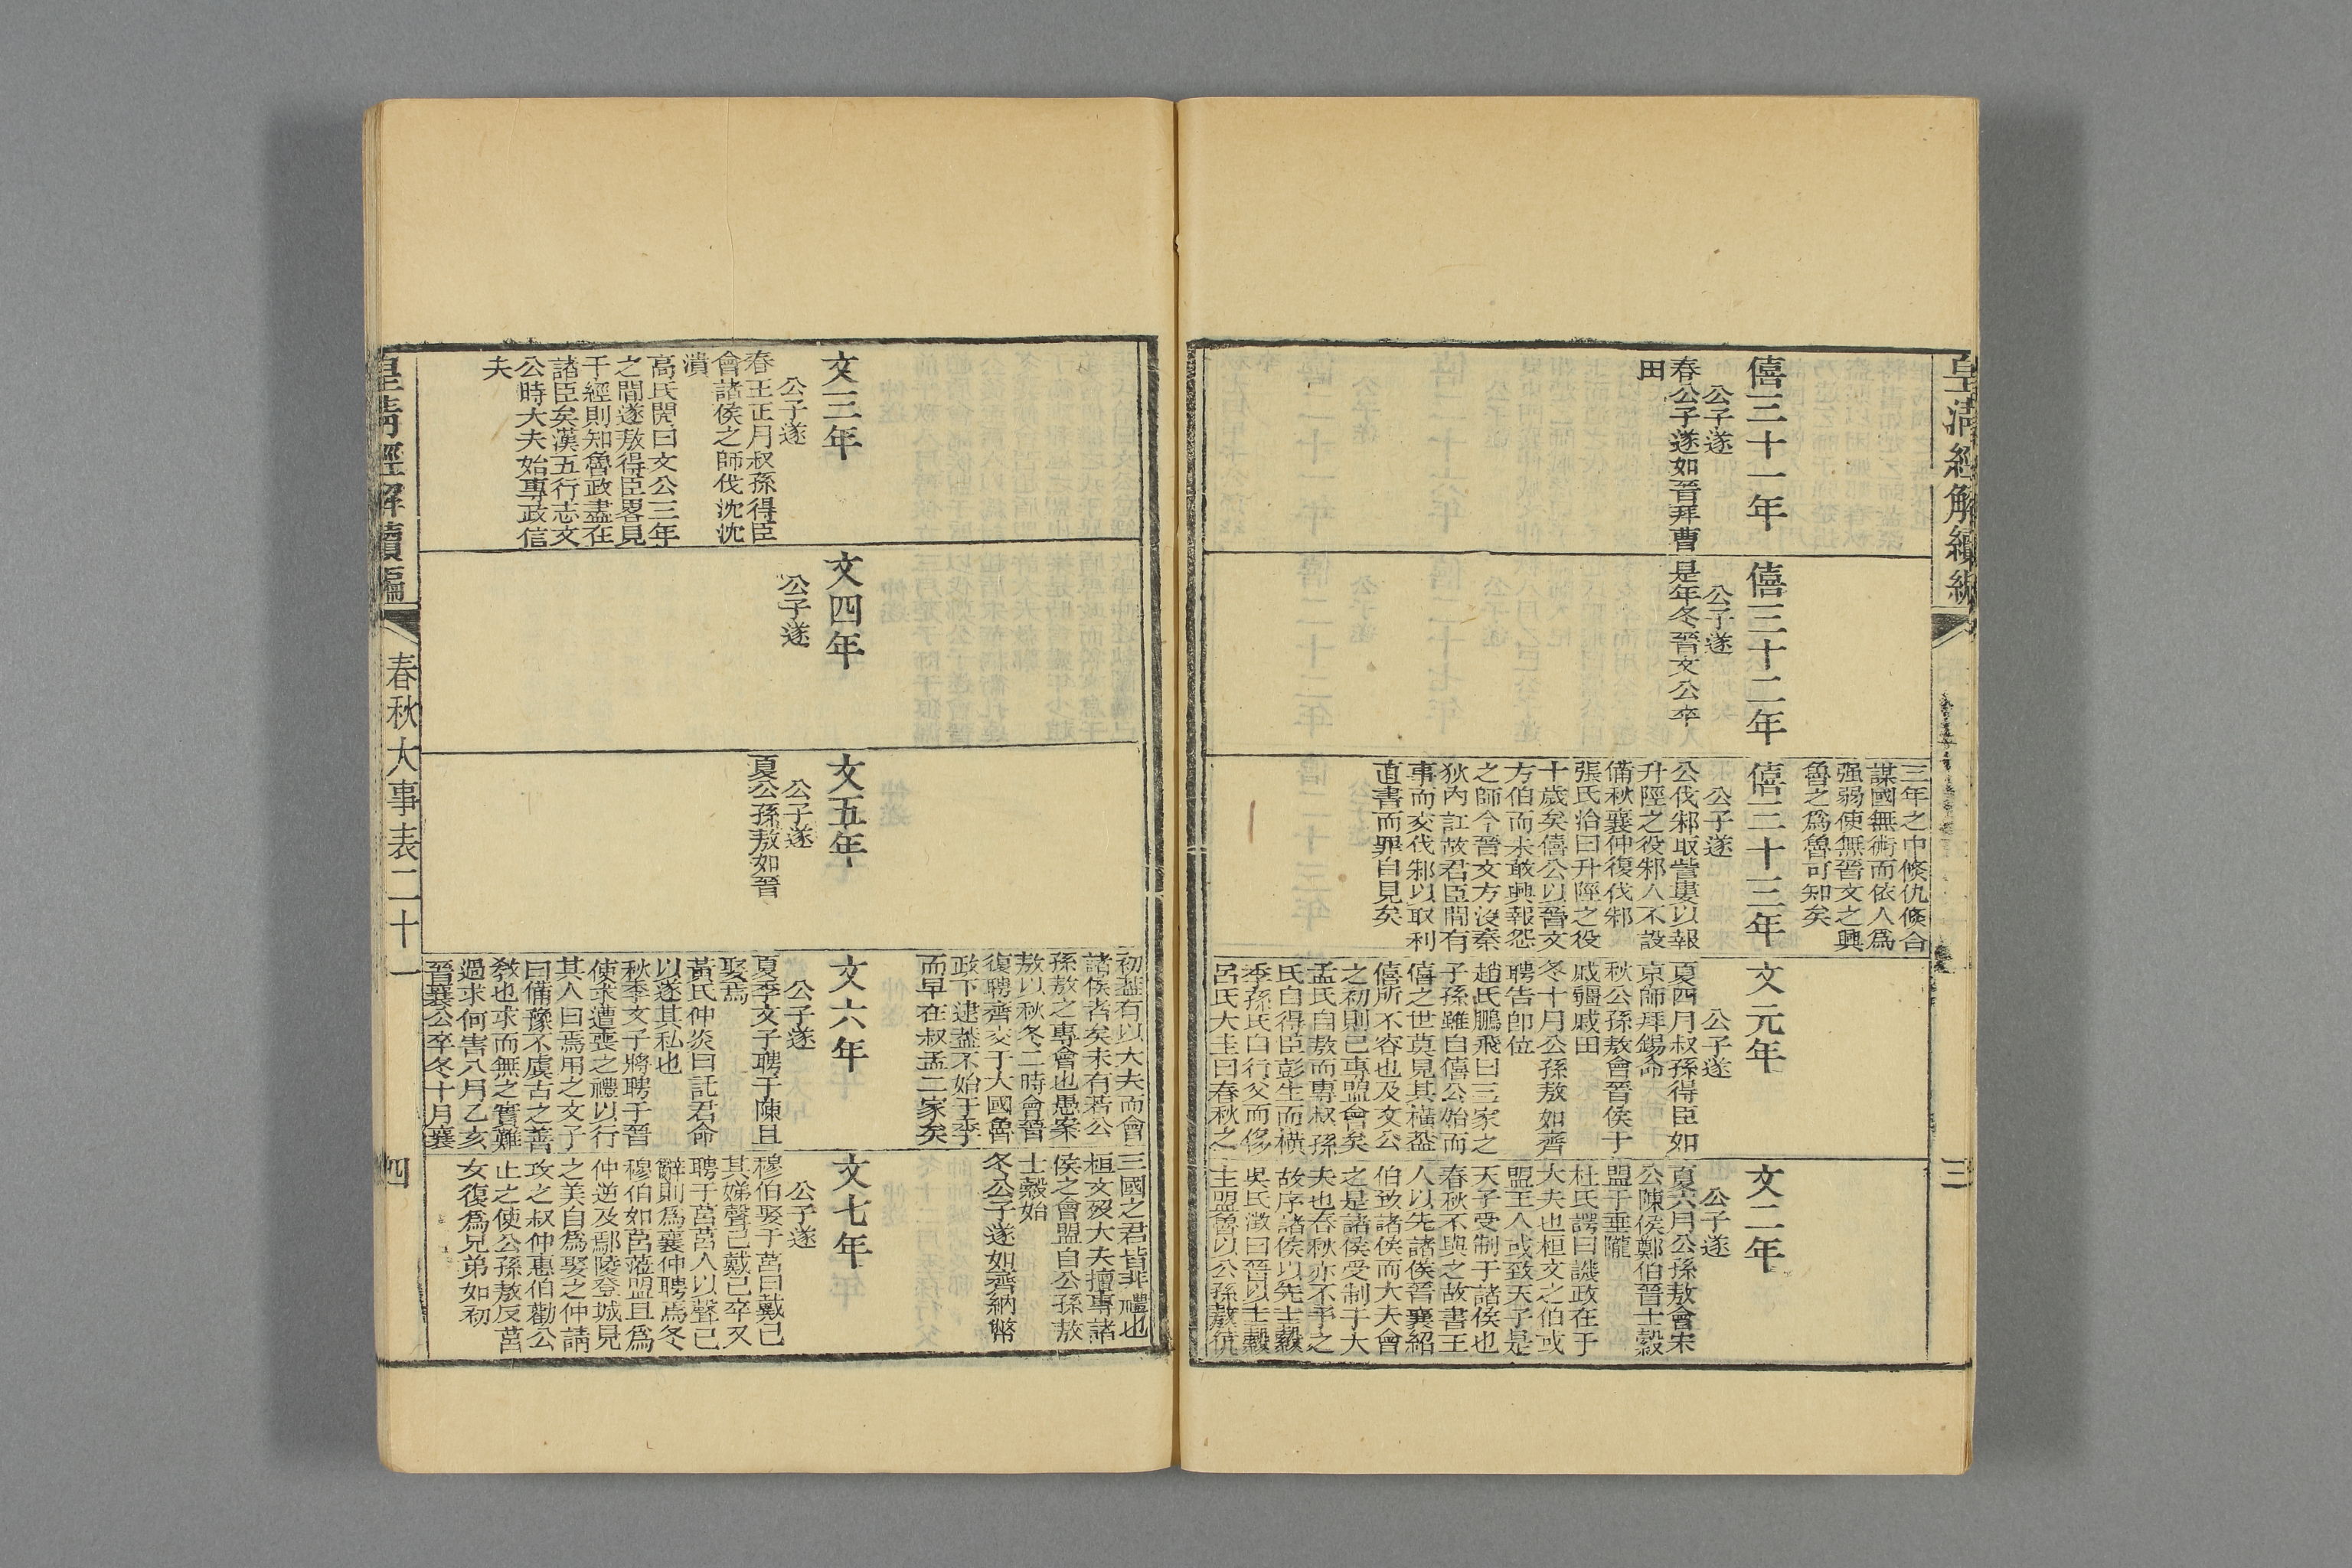 皇清經解續編
三
僖三十一年
公子遂
春公子遂如晉拜曹
田
僖三十二年
公子遂
是年冬晉文公卒
三年之中倏仇倏合
謀國無術而依人爲
强弱使無晉文之興
魯之爲魯可知矣
僖三十三年
公子遂
公伐邾取訾婁以報
升陘之役邾人不設
備秋襄仲復伐邾
張氏洽曰升陘之役
十歲矣僖公以晉文
方伯而未敢興報怨
之師今晉文方沒秦
狄內訌故君臣間有
事而交伐邾以取利
直書而罪自見矣
文元年
公子遂
夏四月叔孫得臣如
京師拜錫命
秋公孫敖會晉侯于
戚疆戚田
冬十月公孫敖如齊
聘告卽位
趙氏鵬飛曰三家之
子孫雖自僖公始而
僖之世莫見其橫蓋
僖所不容也及文公
之初則已專盟會矣
孟氏自敖而專叔孫
氏自得臣彭生而橫
季孫氏自行父而侈
呂氏大圭曰春秋之
文二年
公子遂
夏六月公孫敖會宋
公陳侯鄭伯晉士縠
盟于垂隴
杜氏諤曰譏政在于
大夫也桓文之伯或
盟王人或致天子是
天子受制于諸侯也
春秋不與之故書王
人以先諸侯晉襄紹
伯致諸侯而大夫會
之是諸侯受制于大
夫也春秋亦不予之
故序諸侯以先士縠
吳氏澂曰晉以士縠
主盟魯以公孫敖伉
文三年
公子遂
春王正月叔孫得臣
會諸侯之師伐沈沈
潰
高氏閌曰文公三年
之間遂敖得臣畧見
于經則知魯政盡在
諸臣矣漢五行志文
公時大夫始專政信
夫
文四年
公子遂
文五年
公子遂
夏公孫敖如晉
初蓋有以大夫而會
諸侯者矣未有若公
孫敖之專會也愚案
敖以秋冬二時會晉
復聘齊交于大國魯
政下逮蓋不始于季
而早在叔孟二家矣
文六年
公子遂
夏季文子聘于陳且
娶焉
黃氏仲炎曰託君命
以遂其私也
秋季文子將聘于晉
使求遭喪之禮以行
其人曰焉用之文子
曰備豫不虞古之善
敎也求而無之實難
過求何害八月乙亥
晉襄公卒冬十月襄
三國之君皆非禮也
桓文歿大夫擅專諸
侯之會盟自公孫敖
士縠始
冬公子遂如齊納幣
文七年
公子遂
穆伯娶于莒曰戴己
其娣聲己戴己卒又
聘于莒莒人以聲己
辭則爲襄仲聘焉冬
穆伯如莒蒞盟且爲
仲逆及鄢陵登城見
之美自爲娶之仲請
攻之叔仲惠伯勸公
止之使公孫敖反莒
女復爲兄弟如初
皇清經解續編
春秋大事表二十一
四